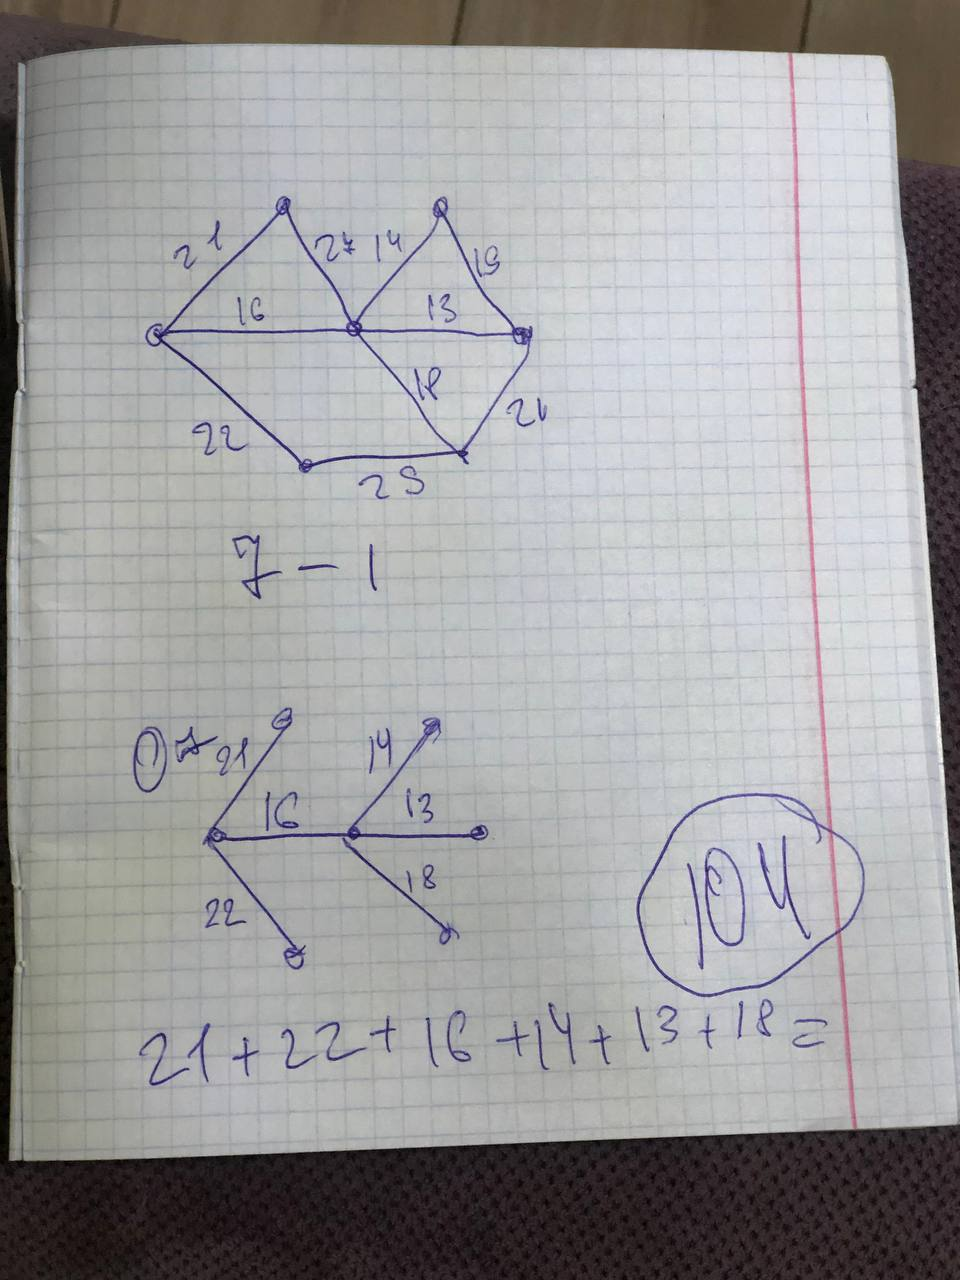 21 27 14 19
16 13
18
22 21
29
7 - 1
7 21 14
16 13
22 18
104
21 + 22 + 16 + 14 + 13 + 18 =